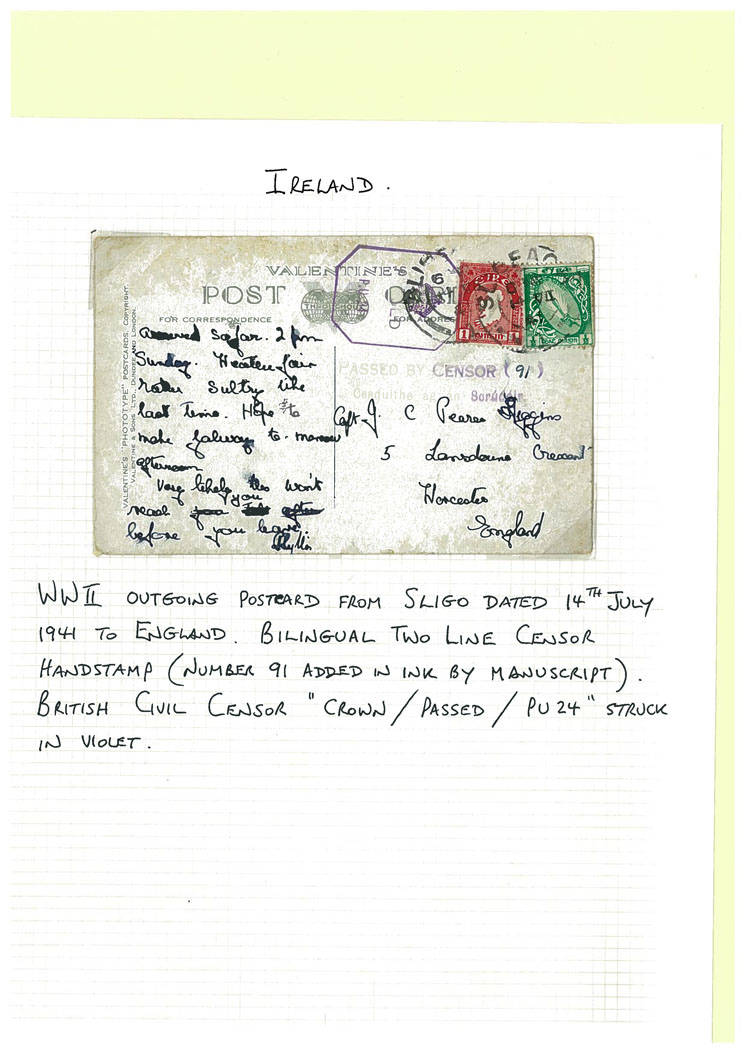 IRELAND.
VALENTINE'S
POST CARD
FOR CORRESPONDENCE
FOR ADDRESS
VALENTINE'S "PHOTOTYPE" POSTCARDS, COPYRIGHT.
VALENTINE & SONS LTD., DUNDEE AND LONDON.
PASSED BY CENSOR (91)
so far. 2 pm
Sunday. fair
Sultry like
last time. Hope to
make Galway to-morrow
afternoon
Very likely this won't
reach you
before you leave.
Phyllis
Capt. J. C Pearce Higgins
5 Lansdowne Crescent
Worcester
England
WWII OUTGOING POSTCARD FROM SLIGO DATED 14TH JULY
1941 TO ENGLAND. BILINGUAL TWO LINE CENSOR
HANDSTAMP (NUMBER 91 ADDED IN INK BY MANUSCRIPT).
BRITISH CIVIL CENSOR "CROWN / PASSED / PU 24" STRUCK
IN VIOLET.